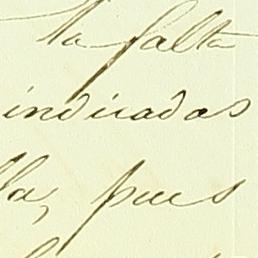 la falta
indicadas
lla, pues